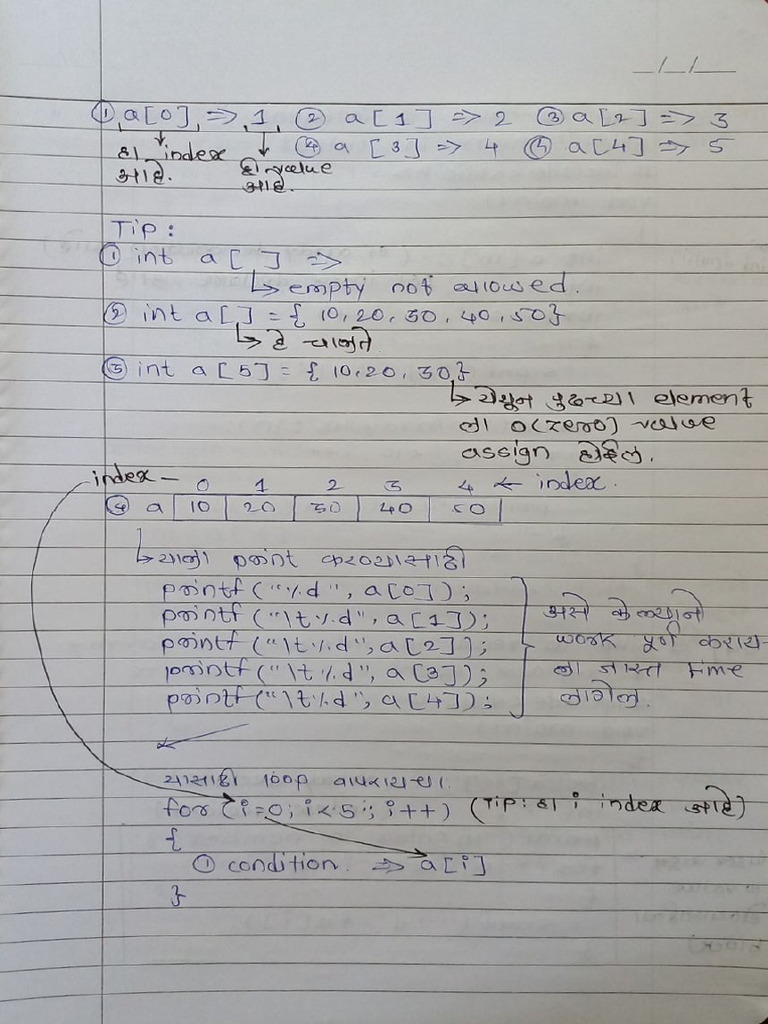 _/_/__
① a[0] => 1, ② a[1] => 2 ③ a[2] => 3
हा index आहे. ही value आहे. ④ a [3] => 4 ⑤ a[4] => 5
Tip :
① int a[ ] =>
↳ empty not allowed.
② int a[ ] = { 10, 20, 30, 40, 50}
↳ हे चालते
③ int a[5] = { 10,20, 30,}
↳ येथून पुढच्या element
ला 0(zero) value
assign होईल.
index - 0 1 2 3 4 ← index.
④ a 10 20 30 40 50
↳ याला print करण्यासाठी
printf ("%d", a[0]);
printf ("\t%d", a[1]);
printf ("\t%d", a[2]);
printf ("\t%d", a[3]);
printf ("\t%d", a[4]);
असे केल्याने
work पूर्ण कराय-
ला जास्त time
लागेल.
यासाठी loop वापरायचा.
for (i=0; i<5; i++) (Tip: हा i index आहे)
{
① condition. => a[i]
}